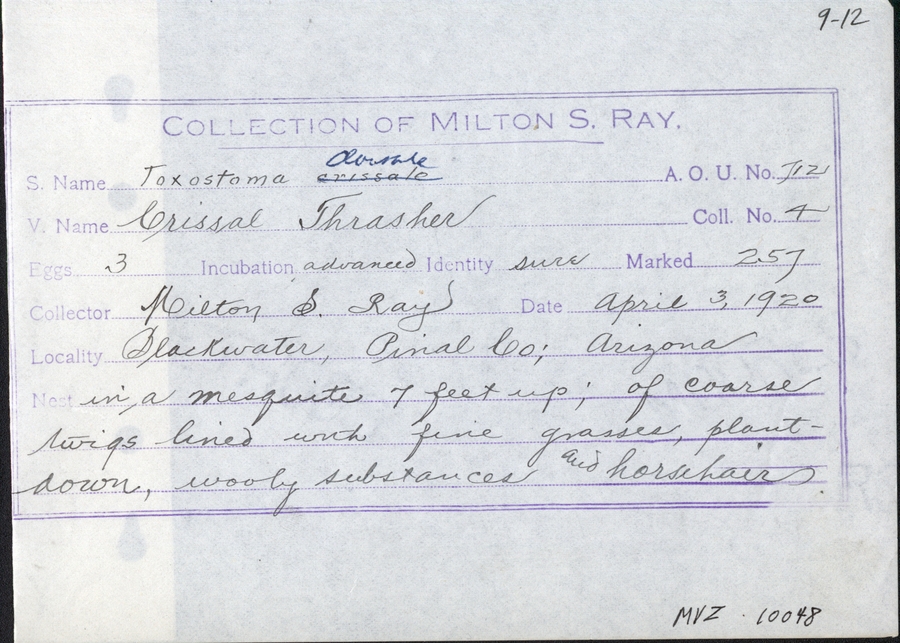 9-12
COLLECTION OF MILTON S. RAY.
S. Name Toxostoma crissale dorsale A. O. U. No. 712
V. Name Crissal Thrasher Coll. No. 4
Eggs 3 Incubation advanced Identity sure Marked 257
Collector Milton S. Ray Date April 3, 1920
Locality Blackwater, Pinal Co; Arizona
Nest in a mesquite 7 feet up; of coarse
twigs lined with fine grasses, plant-
down, wooly substances and horsehair
MVZ · 10048